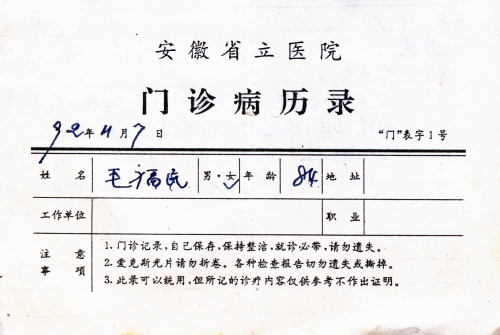 安徽省立医院
门诊病历录
92年4月7日 "门"表字1号
姓名 毛福 男·女 年龄 84 地址
工作单位 职业
注意事项
1. 门诊记录,自己保存,保持整洁,就诊必带,请勿遗失。
2. 爱克斯光片请勿折卷。各种检查报告切勿遗失或撕掉。
3. 此录可以统用,但所记的诊疗内容仅供参考不作出证明。